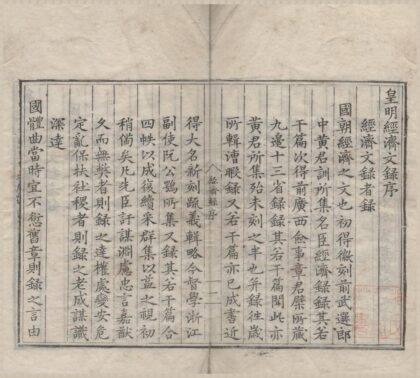 皇明經濟文錄序
經濟文錄者錄
國朝經濟之文也初得徽刻前武選郎
中黃君訓所集名臣經濟錄錄其若
干篇次得前廣西僉事章君檗所藏
九邊十三省錄錄其若干篇閱此亦
黃君所集殆未刻之半也并錄徃歲
所輯漕暇錄又若干篇亦已成書近
得大名新刻疏義輯略今督學浙江
副使阮公鶚所集又錄其若干篇合
四帙以成後續采群集以益之視初
稍備矣凡先臣訏謀淵慮忠言嘉猷
久而無弊者則錄之達權處變安危
定亂保扶社稷者則錄之老成謀識
深達
國體曲當時宜不愆舊章則錄之言由
經濟文錄序
一